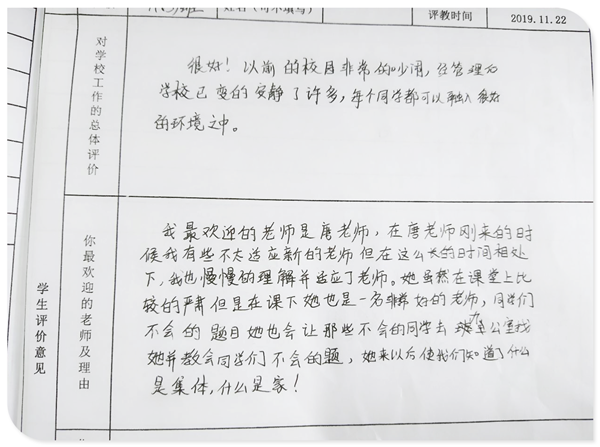 姓名（可不填写）
评教时间
2019.11.22
对学校工作的总体评价
很好！以前的校园非常的吵闹，经管理后
学校已变的安静了许多，每个同学都可以融入很好
的环境之中。
学生评价意见
你最欢迎的老师及理由
我最欢迎的老师是唐老师，在唐老师刚来的时
候我有些不太适应新的老师但在这么长的时间相处
下，我也慢慢的理解并适应了老师。她虽然在课堂上比
较的严肃但是在课下她也是一名非常好的老师，同学们
不会的题目她也会让那些不会的同学去办公室找
她并教会同学们不会的题，她来以后使我们知道了什么
是集体，什么是家！